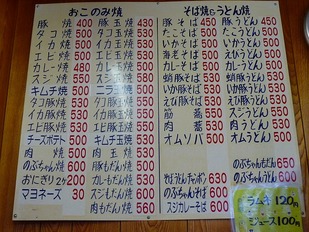 おこのみ焼
豚焼 400
タコ焼 500
イカ焼 500
エビ焼 500
カレー焼 480
スジ焼 550
キムチ焼 500
タコ豚焼 530
イカ豚焼 530
エビ豚焼 530
チーズポテト 500
肉焼 500
のぶちゃん焼 600
おにぎり2ケ 200
マヨネーズ 30
豚玉焼 430
タコ玉焼 530
イカ玉焼 530
エビ玉焼 530
カレー玉焼 510
スジ玉焼 580
ニラ玉焼
キムチ玉焼
肉玉焼
豚もだん焼
そば焼 うどん焼
豚そば 450
たこそば 500
いかそば 500
海老そば 500
カレーそば 500
蛸豚そば 530
いか豚そば 530
えび豚そば 530
オムソバ 500
そばうどんチャンポン 630
のぶちゃんそば 600
スジカレーそば 600
豚うどん 450
たこうどん 500
いかうどん 500
えびうどん 500
カレーうどん 500
蛸豚うどん 530
いか豚うどん 530
えび豚うどん 530
スジうどん 550
肉うどん 500
のぶちゃんもだん 650
のぶちゃんうどん 600
ラムネ 120円
ジュース 100円